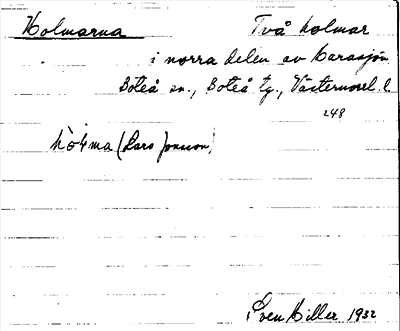 Holmarna Två holmar
i norra delen av Harasjön
Boteå sn., Boteå tg., Västernorrl. l
248
(Lars Jonsson)
Sven Hiller 1932